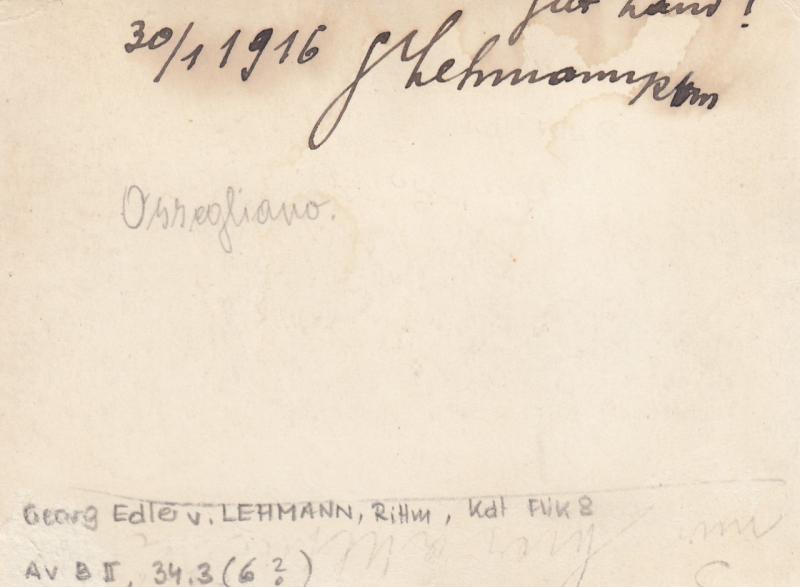 gut Land!
30/1 1916 GLehmann Rtm
Ossegliano.
Georg Edler v. LEHMANN, Rittm, Kdt Flik 8
AV B II, 34.3 (6 ?)